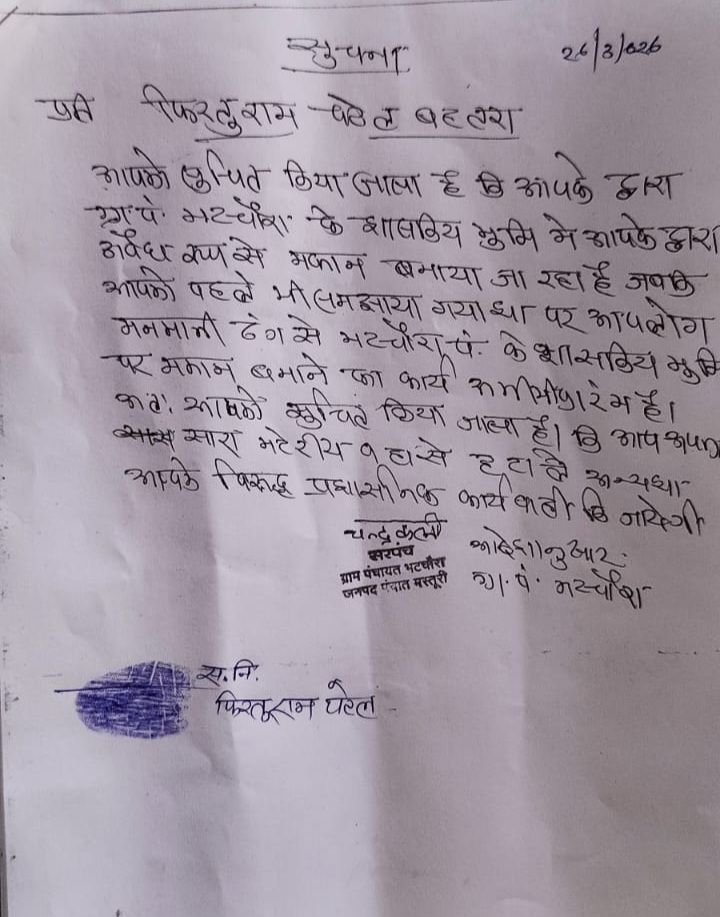 सुचना
26/3/026
प्रति फिरतुराम पटेल बहतरा
आपको सुचित किया जाता है कि आपके द्वारा
ग्रा.पं. भटचौरा के शासकिय भुमि मे आपके द्वारा
अवैध रूप से मकान बनाया जा रहा है जबकि
आपको पहले भी समझाया गया था पर आपलोग
मनमानी ढंग से भटचौरा पं. के शासकिय भुमि
पर मकान बनाने का कार्य अभी भी प्रारंभ है।
अतः आपको सुचित किया जाता है। कि आप अपना
सारा मटेरीय वहा से हटा ले अन्यथा
आपके विरूद्ध प्रशासनिक कार्यवाही कि जायेगी
चन्द्रकली
सरपंच
ग्राम पंचायत भटचौरा
जनपद पंचात मस्तूरी
आदेशानुसार
ग्रा. पं. भटचौरा
स.नि.
फिरतुराम पटेल